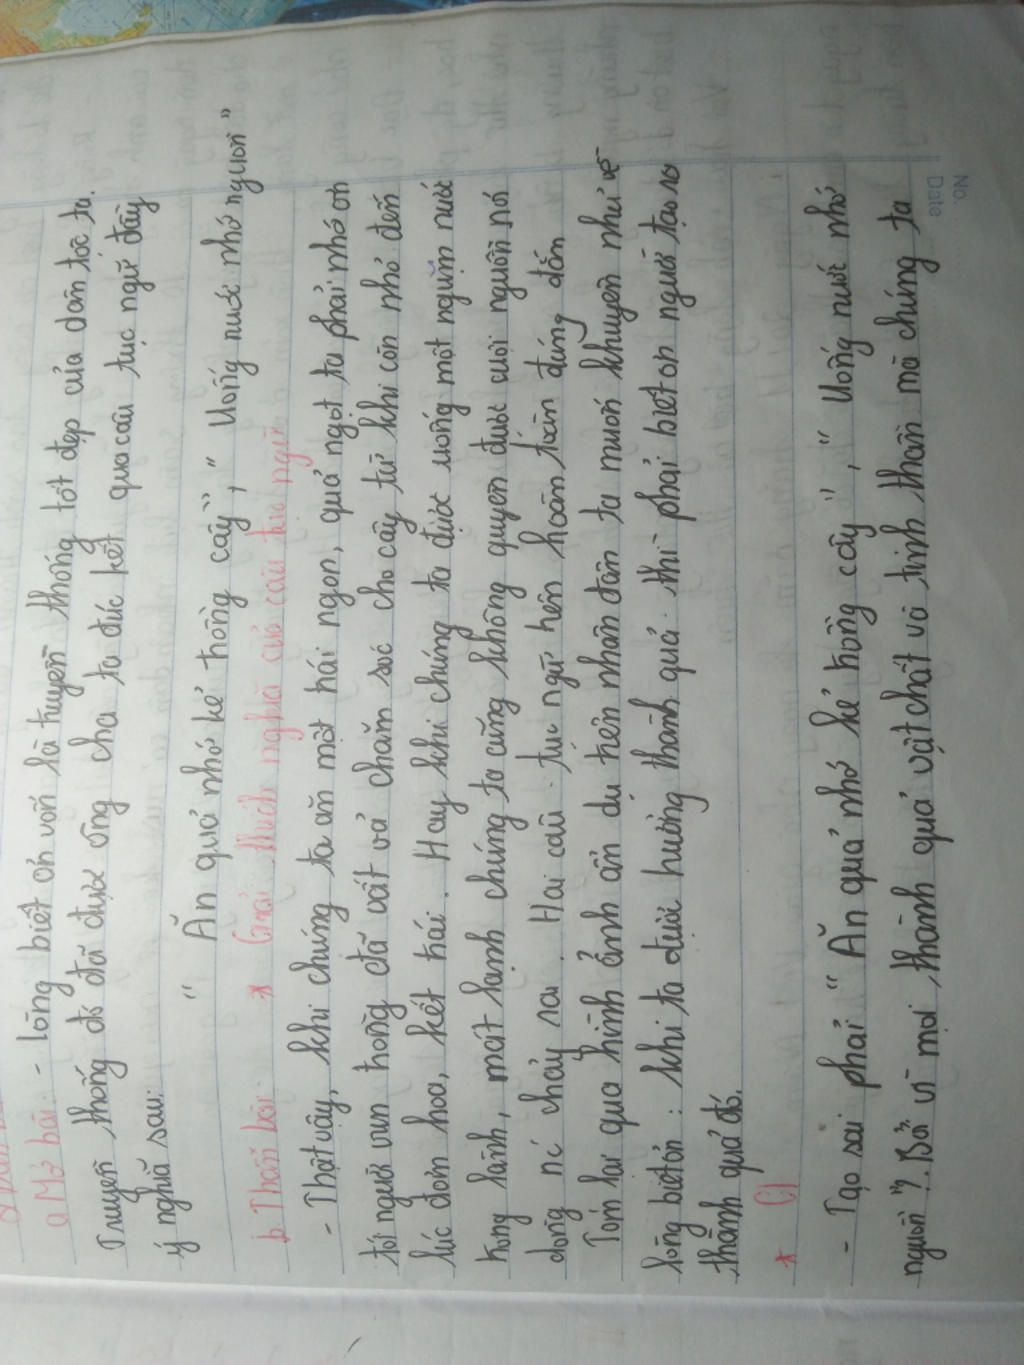 a Mở bài: - lòng biết ơn vốn là truyền thống tốt đẹp của dân tộc ta.
Truyền thống đó đã được ông cha ta đức kết qua câu tục ngữ đầy
ý nghĩa sau:
" Ăn quả nhớ kẻ trồng cây", " Uống nước nhớ nguồn"
b. Thân bài: * Giải thích nghĩa của câu tục ngữ
- Thật vậy, khi chúng ta ăn một trái ngon, quả ngọt ta phải nhớ ơn
tới người vun trồng đã vất vả chăm sóc cho cây từ khi còn nhỏ đến
lúc đơn hoa, kết trái. Hay khi chúng ta được uống một ngụm nước
trong lành, mát lạnh chúng ta cũng không quyên được cuội nguồn nơi
dòng nc chảy ra. Hai câu tục ngữ trên hoàn toàn đúng đắn
Tóm lại qua hình ảnh ẩn dụ trên nhân dân ta muốn khuyên nhủ về
lòng biết ơn: khi ta được hưởng thành quả thì phải biết ơn người tạo ra
thành quả đó.
* C1
- Tạo sai phải " Ăn quả nhớ kẻ trồng cây", " Uống nước nhớ
nguồn"? Bởi vì mọi thành quả vật chất và tinh thần mà chúng ta
No.
Date